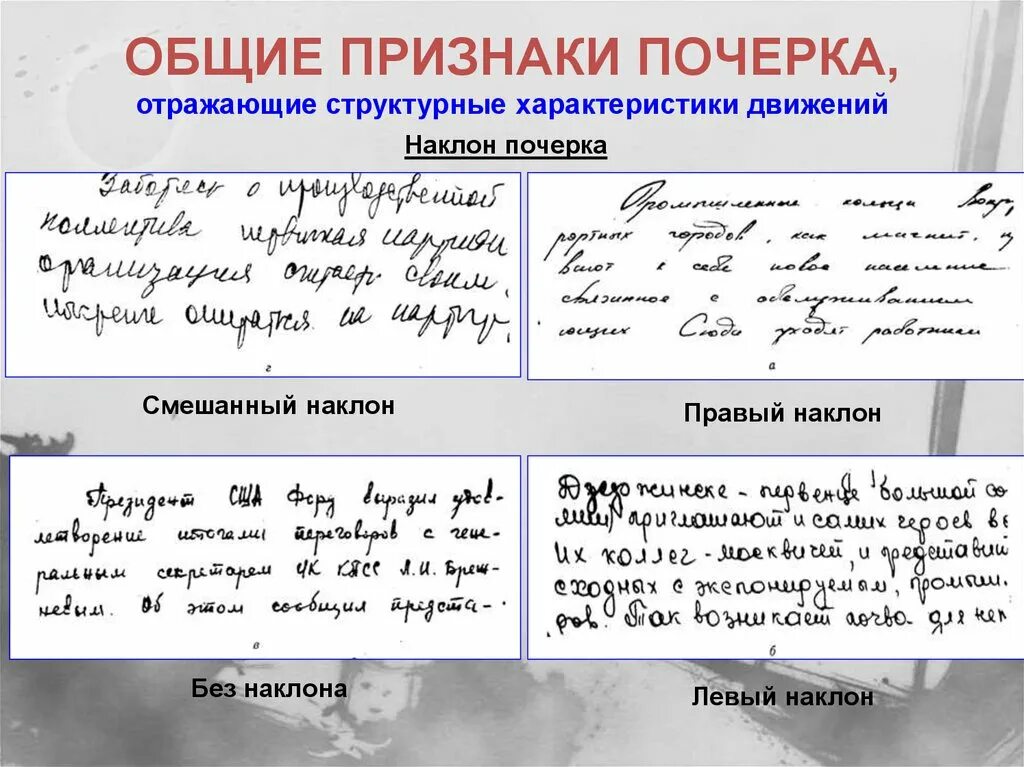 ОБЩИЕ ПРИЗНАКИ ПОЧЕРКА,
отражающие структурные характеристики движений
Наклон почерка
Заботясь о производственной
коллектива первичная партийн
организация считает своим
опирается на партгру
г
Смешанный наклон
Промышленные кольца вокр
портных городов, как магнит,
вают к себе новое население
связанное с обслуживанием
ющих Сюда уходят работники
а
Правый наклон
Президент США Форд выразил удов-
летворение итогами переговоров с гене-
ральным секретарем ЦК КПСС Л.И. Бреж-
невым. Об этом сообщил предста-
в
Без наклона
Дзержинске - первенце большой
приглашают и самих героев
Их коллег - москвичей, и представит
сходных с экспонируемым, промыш
ров. Так возникает почва для неп
б
Левый наклон